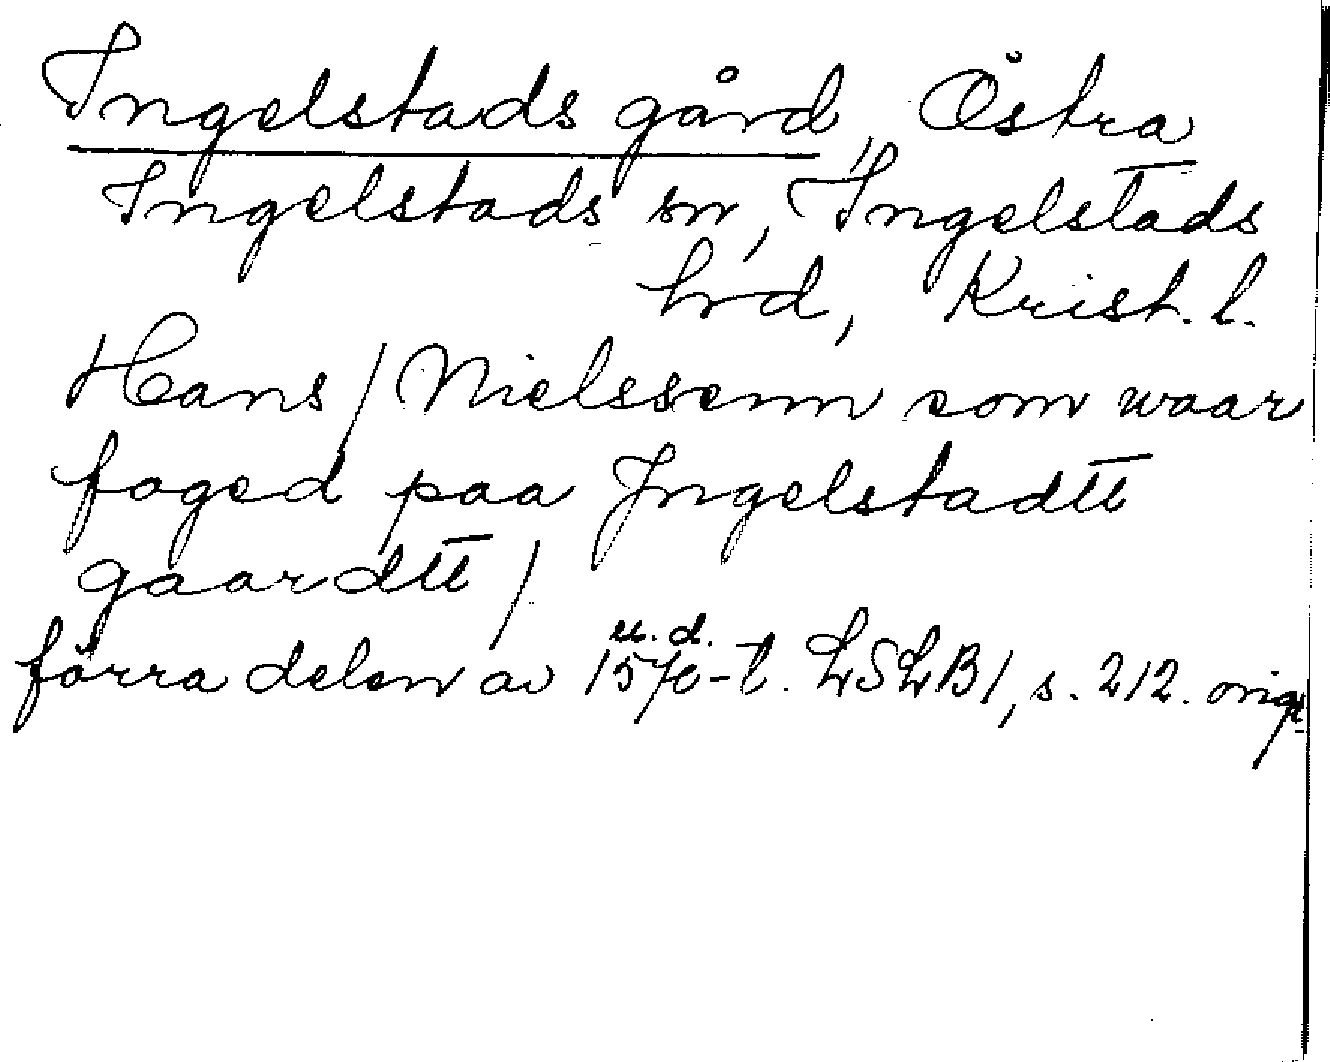 Ingelstads gård, Östra
Ingelstads sn, Ingelstads
hrd, Krist. l.
Hans / Nielssenn som waar
foged paa Jngelstadtt
gaardtt /
u. d.
förra delen av 1570-t. LSLB1, s. 212. orig.